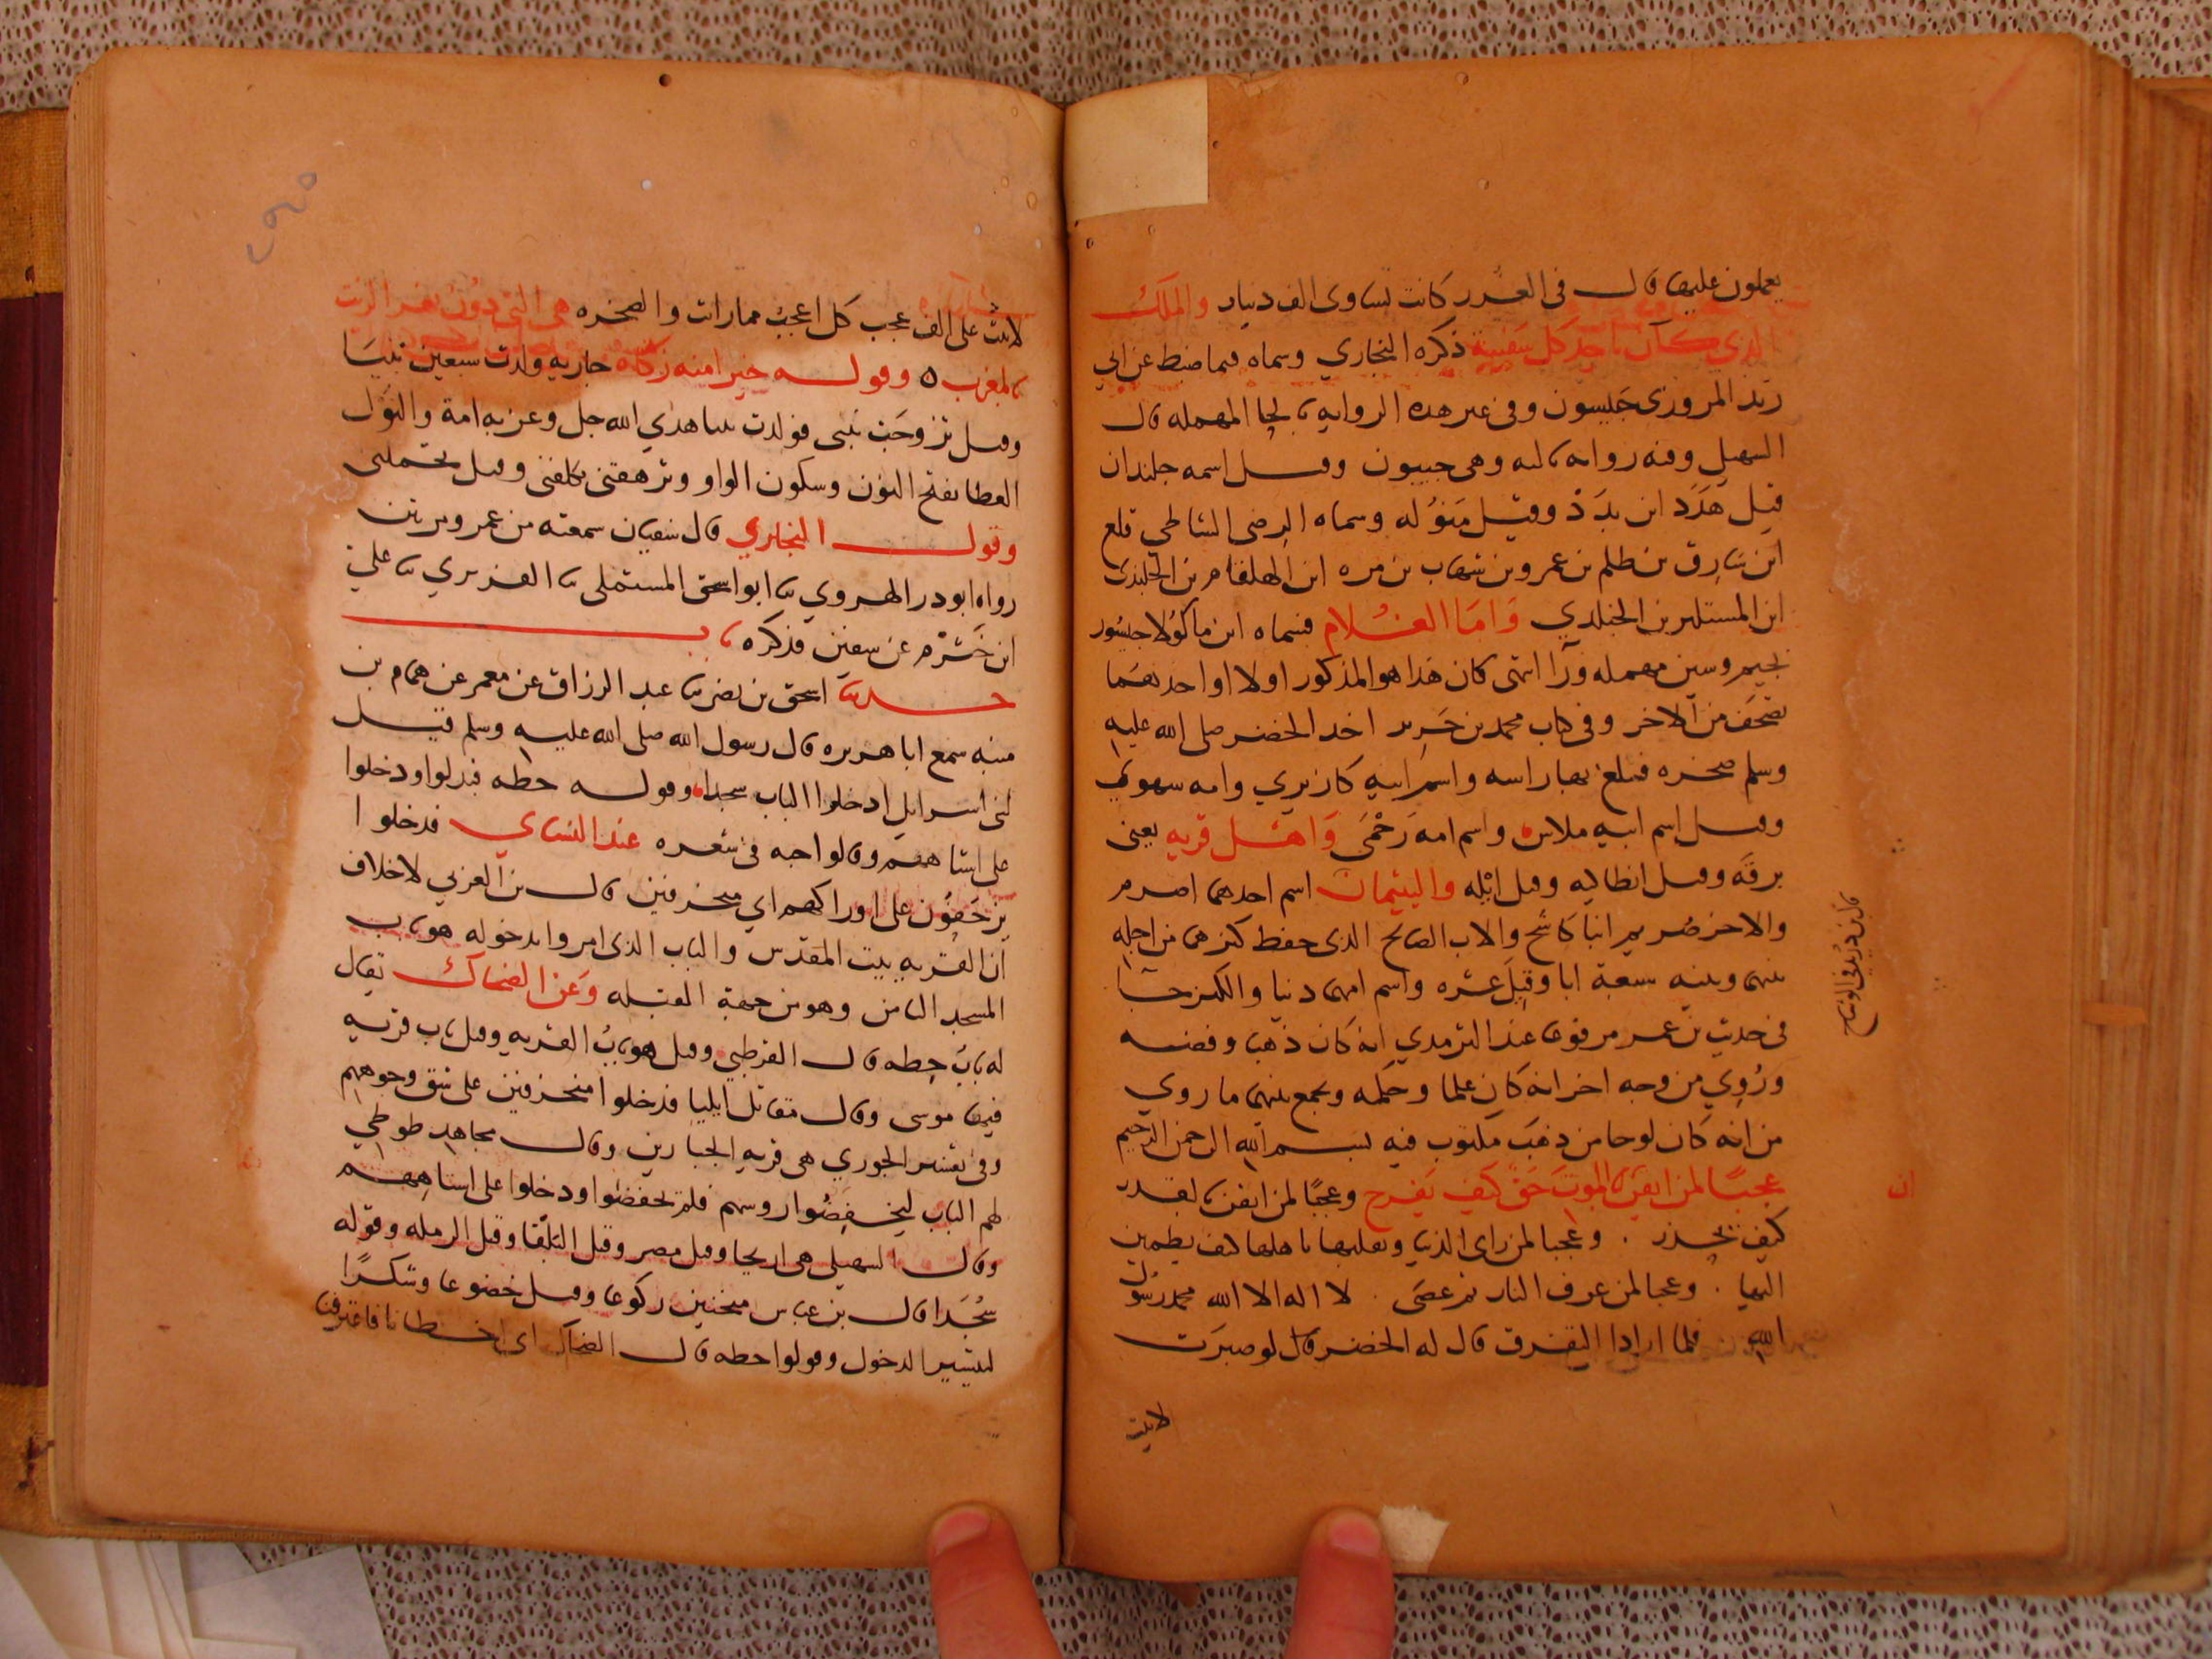 يعملون عليها قال في الغرر كانت تساوى الف دينار والملك
الذي كان ياخذ كل سفينة ذكره البخاري وسماه فيما ضبط عن ابي
زيد المروزى جيسون وفي غير هذه الرواية بالحا المهمله قال
السهيلي وفيه روايه ثالثه وهي حبيون وقيل اسمه جلندان
قيل هدد ابن بدد وقيل منوله وسماه الرضى الشاطبي قلع
ابن سارق بن ظلم بن عمرو بن شهاب بن مره ابن الهلقام بن الجلندى
ابن المستلير بن الجلندي واما الغلام فسماه ابن ماكولا جيسور
بجيم وسين مهمله ورا انتهى كان هذا هو المذكور اولا او احدهما
تصحف من الاخر وفي كتاب محمد بن جرير اخذ الخضر صلى الله عليه
وسلم صخره فثلغ بها راسه واسم ابيه كازيري وامه سهوي
وقيل اسم ابيه ملاس واسم امه رحمى واهل قريه يعني
برقة وقيل انطاليه وقيل ايله واليتيمان اسم احدهما اصرم
والاخر صريم ابنا كاشح والاب الصالح الذى حفظ كنزهما من اجله
بينهما وبينه سبعة ابا وقيل عشره واسم امهما دنيا والكنز جا
في حديث بن عمر مرفوعا عند الترمدي انه كان ذهبا وفضه
وروي من وجه اخر انه كان علما وحكمه ويجمع بينهما ما روي
من انه كان لوحا من ذهب مكتوب فيه بسم الله الرحمن الرحيم
عجبا لمن ايقن بالموت حق كيف يفرح وعجبا لمن ايقن بالقدر
ان
كيف يحذر . وعجبا لمن راى الدنيا وتقلبها باهلها كيف يطمين
اليها . وعجبا لمن عرف النار ثم عصى . لا اله الا الله محمد رسول
الله فلما ارادا التفرق قال له الخضر قال لو صبرت
لاتيت
لاتيت على الف عجب كل اعجب مما رات والصخره هي التي دون نهر الزيت
بالمغرب ٥ وقوله خيرا منه زكاه جاريه ولدت سبعين نبيا
وقيل تزوجت نبي فولدت نبيا هدي الله جل وعز به امة والنول
العطا بفتح النون وسكون الواو وترهقني تكلفني وقيل تحملني
وقول البخاري قال سفيان سمعته من عمرو مرتين
رواه ابو در الهروي نا ابو اسحق المستملى نا الفربري نا علي
ابن خشرم عن سفين فذكره باب
حدثنا اسحق بن نصر نا عبد الرزاق عن معمر عن همام بن
منبه سمع ابا هريره قال رسول الله صلى الله عليه وسلم قيل
لبني اسرايل ادخلوا الباب سجدا وقوله حطه فبدلوا ودخلوا
على استاههم وقالوا حبه في شعره عند النساي فدخلوا
يزحفون على اوراكهم اي منحرفين قال بن العربي لا خلاف
ان القريه بيت المقدس والباب الذى امروا بدخوله هو باب
المسجد الثامن وهو من جهة القبله وعن الضحاك يقال
له باب حطه قال القرطبي وقيل هو باب القريه وقيل باب قريه
فيها موسى وقال مقاتل ايليا فدخلوا منحرفين على شق وجوههم
وفي تفسير الجوزي هي قريه الجبارين وقال مجاهد طوطي
لهم الباب ليخفضوا روسهم فلم يخفضوا ودخلوا على استاههم
وقال السهيلي هي اريحا وقيل مصر وقيل البلقا وقيل الرمله وقوله
سجدا قال بن عباس منحنين ركوعا وقيل خضوعا وشكرا
لتيسير الدخول وقولوا حطه قال الضحاك اي اخطانا فاعترفنا